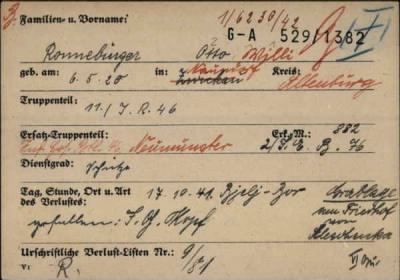 g. Familien- u. Vorname: 1/6230/42
G-A 529/1382
Ronneburger Otto Willi
geb. am: 6.5.20 in: Zwickau Naundorf Kreis: Altenburg
Truppenteil: 11./J.R. 46
Ersatz-Truppenteil: Neumünster Erk.-M.: 882
2/J.E.B. 76
Dienstgrad: Schütze
Tag, Stunde, Ort u. Art des Verlustes: 17.10.41 Bjelj-Bor Grablage
gefallen: I.G. Kopf
Urschriftliche Verlust-Listen Nr.: 9/81
v: R.